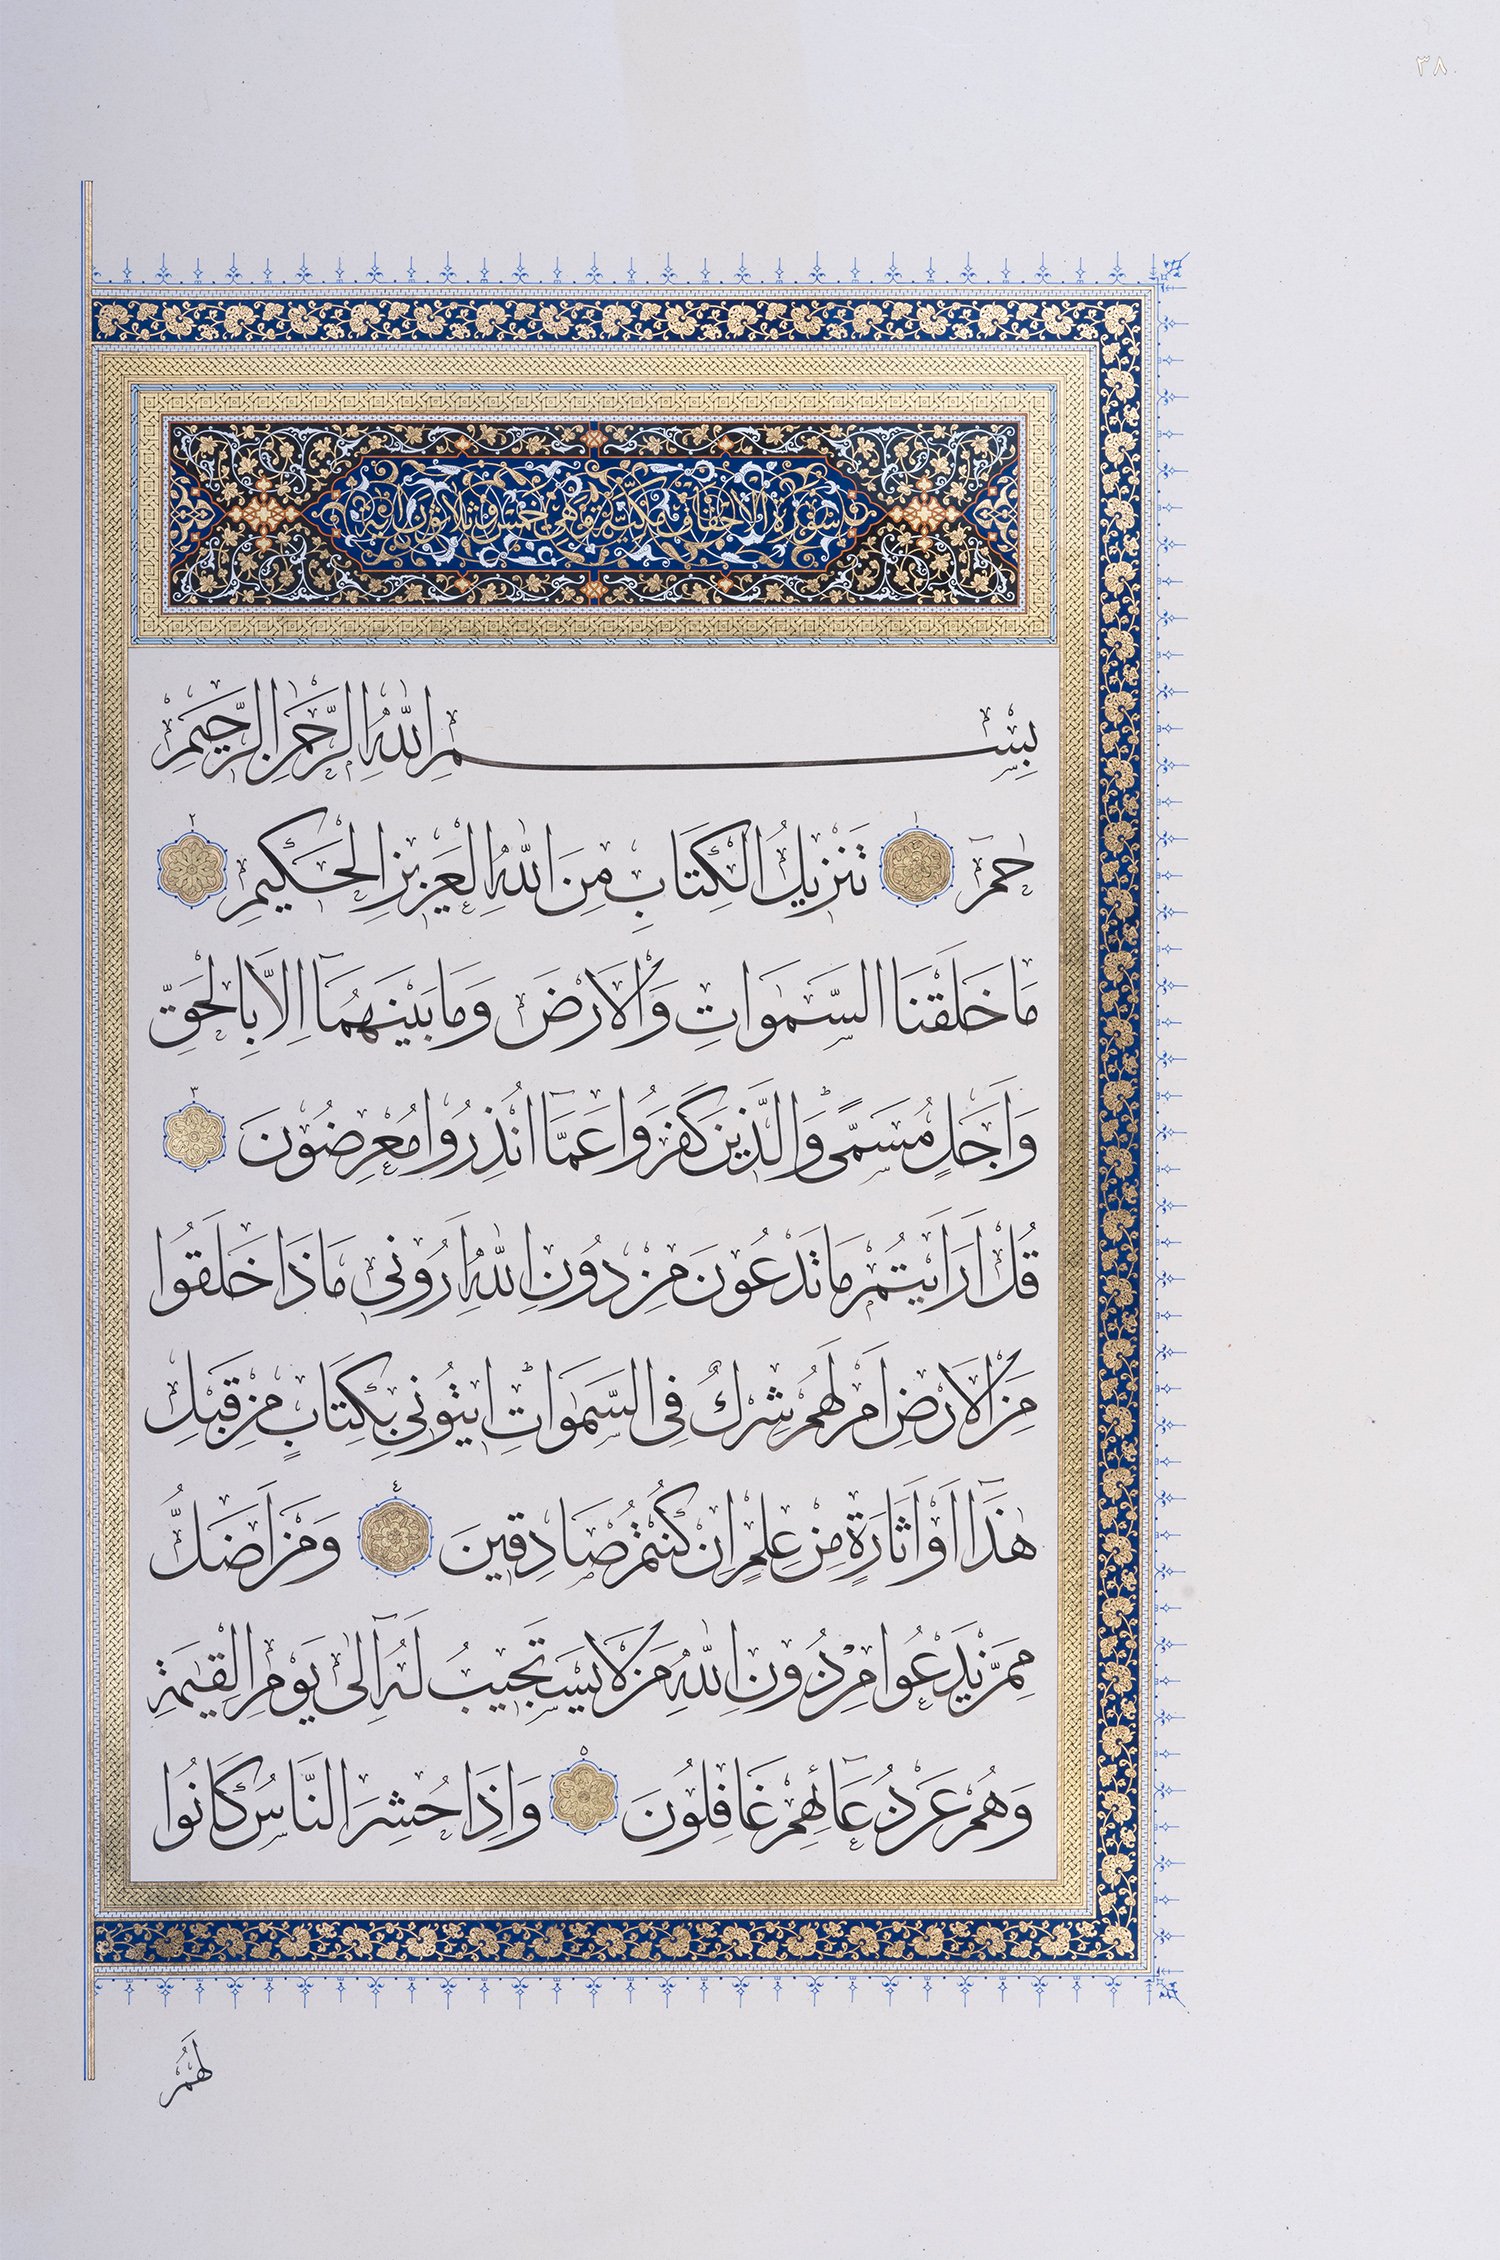 ٣٨
سُورَةُ الْاَحْقَافِ مَكِّيَّةٌ وَهِيَ خَمْسٌ وَثَلَاثُونَ اٰيَةً
بِسْمِ اللّٰهِ الرَّحْمٰنِ الرَّحِيمِ
حٰمٓ ١ تَنْزِيلُ الْكِتَابِ مِنَ اللّٰهِ الْعَزِيزِ الْحَكِيمِ ٢
مَا خَلَقْنَا السَّمٰوَاتِ وَالْاَرْضَ وَمَا بَيْنَهُمَٓا اِلَّا بِالْحَقِّ
وَاَجَلٍ مُسَمًّىۜ وَالَّذِينَ كَفَرُوا عَمَّٓا اُنْذِرُوا مُعْرِضُونَ ٣
قُلْ اَرَاَيْتُمْ مَا تَدْعُونَ مِنْ دُونِ اللّٰهِ اَرُونِي مَاذَا خَلَقُوا
مِنَ الْاَرْضِ اَمْ لَهُمْ شِرْكٌ فِي السَّمٰوَاتِۜ اِيتُونِي بِكِتَابٍ مِنْ قَبْلِ
هٰذَٓا اَوْ اَثَارَةٍ مِنْ عِلْمٍ اِنْ كُنْتُمْ صَادِقِينَ ٤ وَمَنْ اَضَلُّ
مِمَّنْ يَدْعُوا مِنْ دُونِ اللّٰهِ مَنْ لَا يَسْتَجِيبُ لَهُٓ اِلٰى يَوْمِ الْقِيٰمَةِ
وَهُمْ عَنْ دُعَٓائِهِمْ غَافِلُونَ ٥ وَاِذَا حُشِرَ النَّاسُ كَانُوا
لَهُمْ